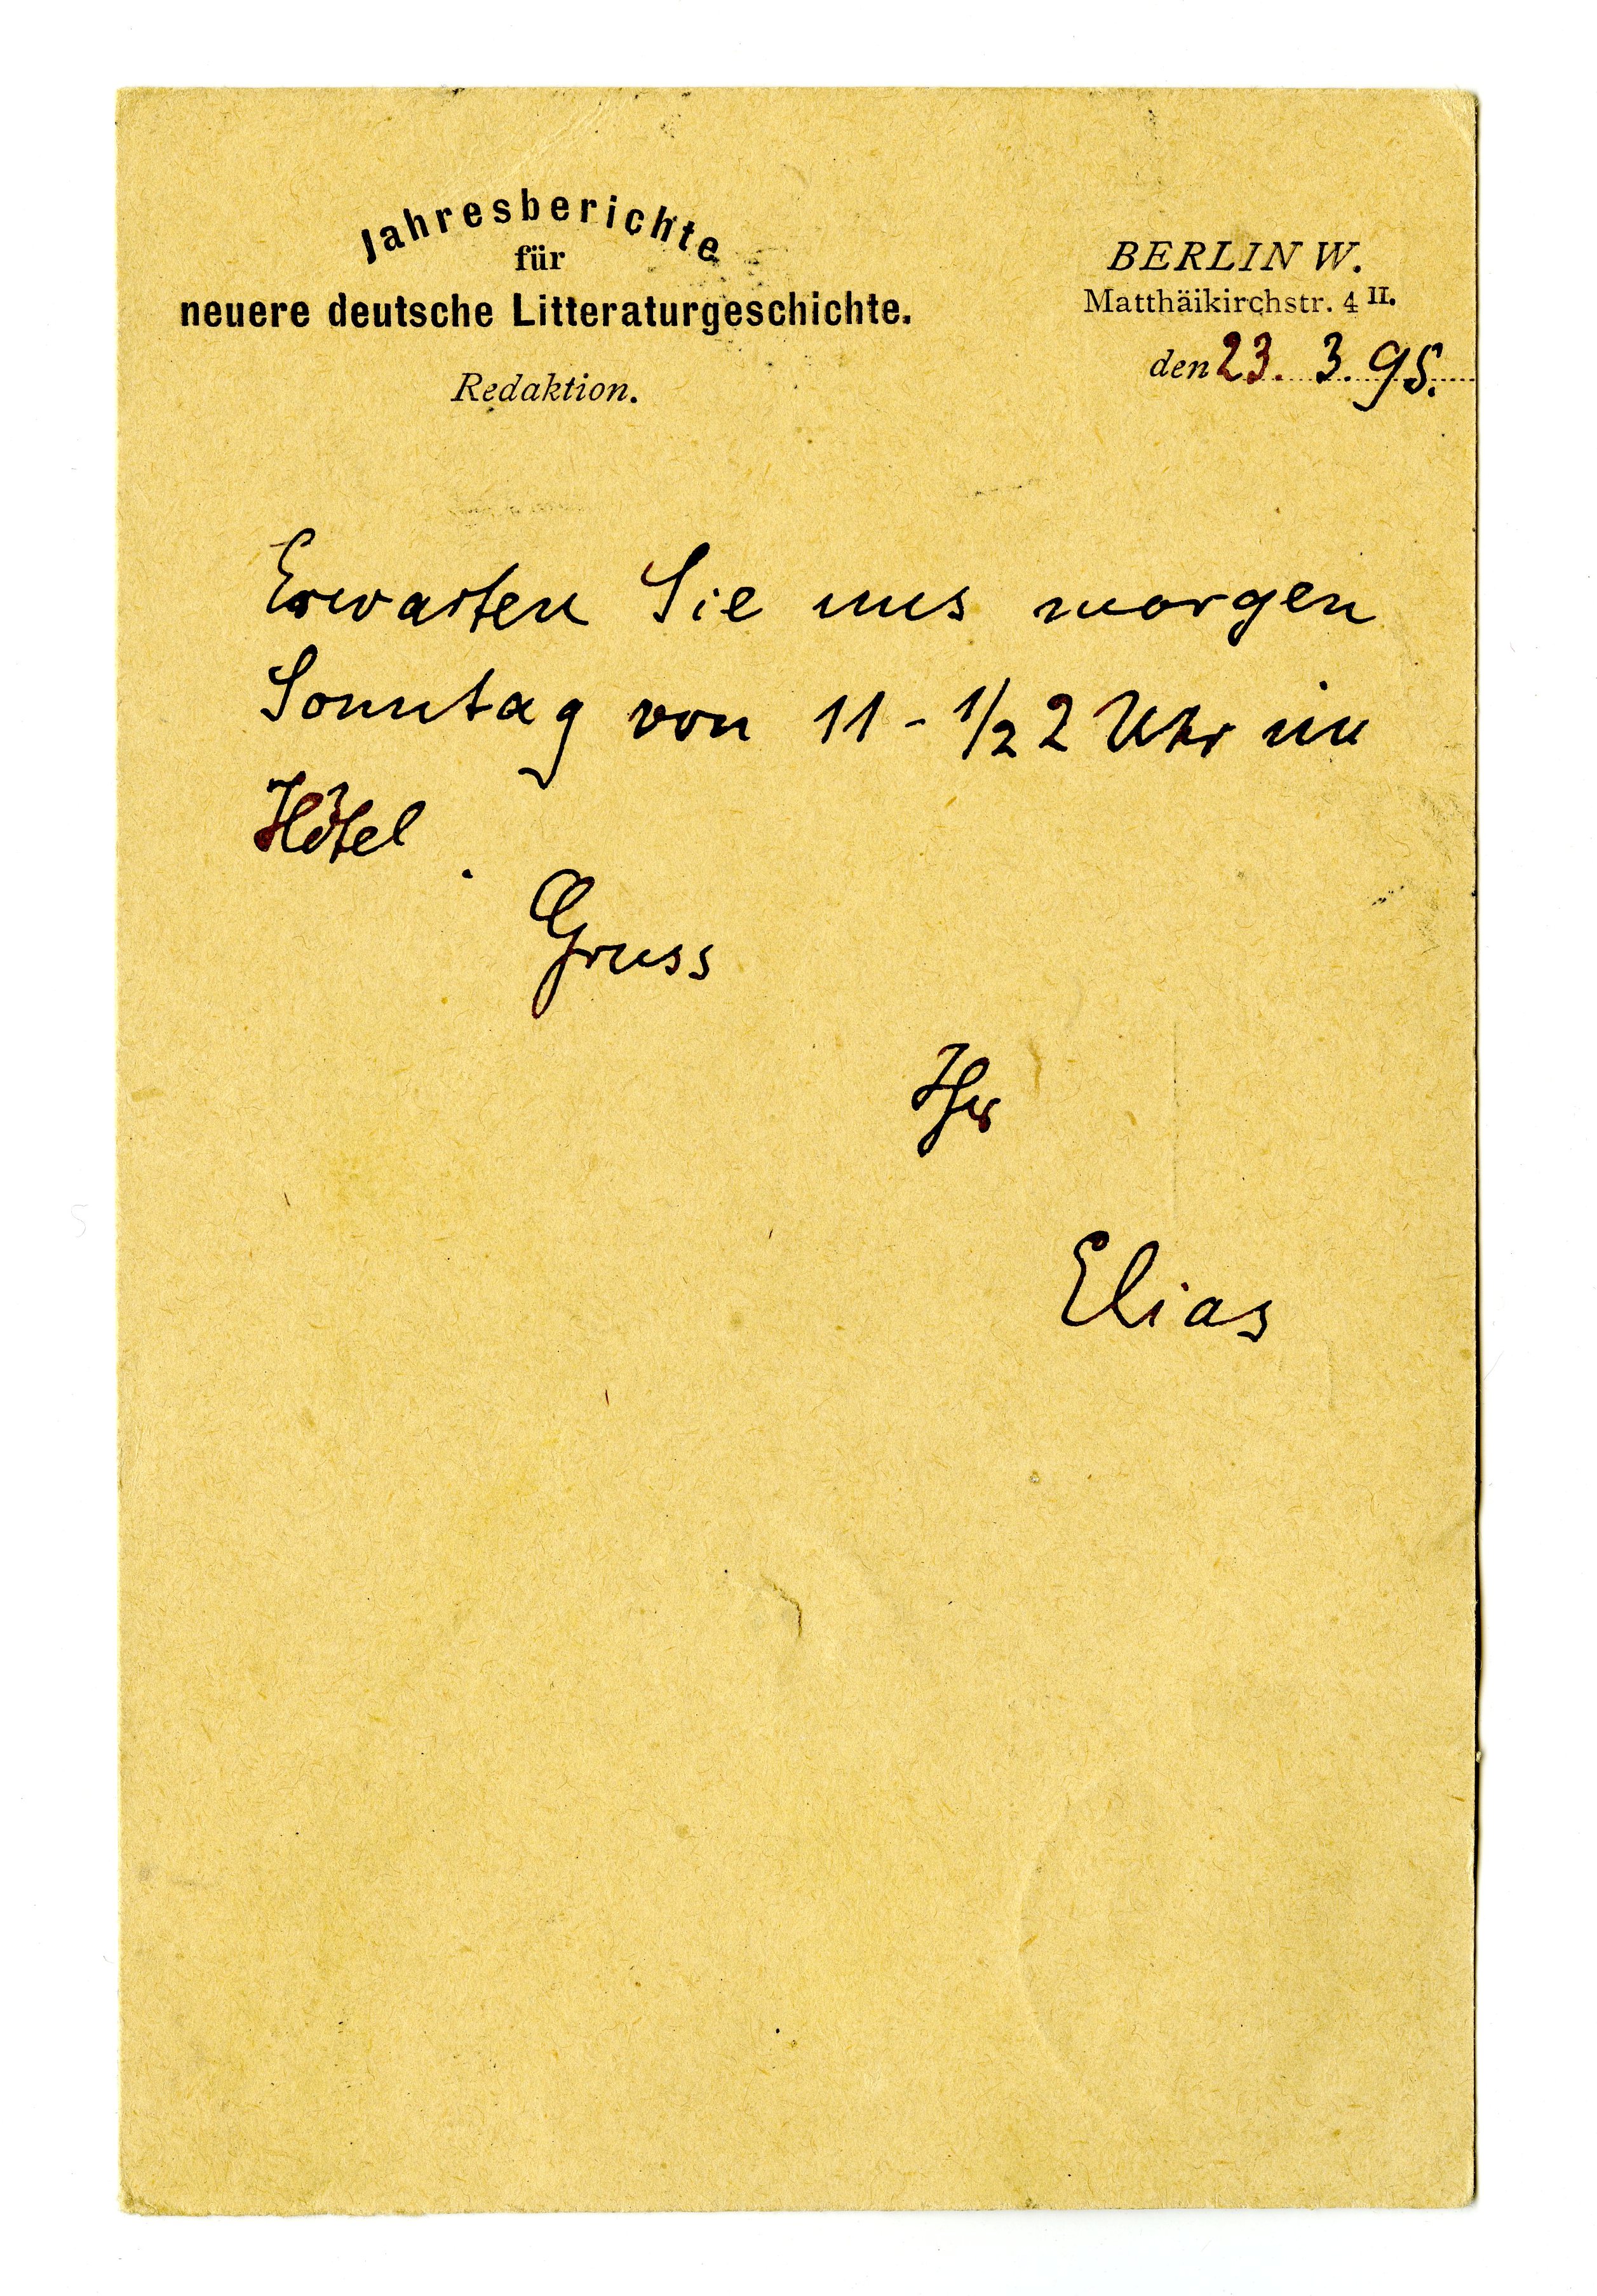 Jahresberichte
für
neuere deutsche Litteraturgeschichte.
Redaktion.
BERLIN W.
Matthäikirchstr. 4 II.
den 23. 3. 95.
Erwarten Sie uns morgen
Sonntag von 11 - 1/2 2 Uhr im
Hôtel.
Gruss
Ihr
Elias